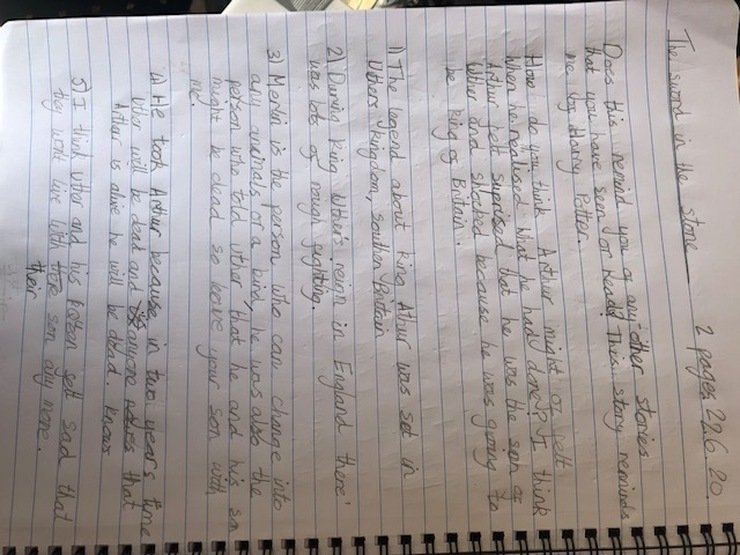 2 pages 22.6.20.
The sword in the stone
Does this remind you of any other stories
that you have seen or read? This story reminds
me by Harry Potter.
How do you think Arthur might of felt
when he realised what he had done? I think
Arthur felt suprised that he was the son of
Uther and shocked because he was going to
be king of Britain.
1) The legend about king Athur was set in
Uthers kingdom, southen Britain
2) During king Uther's reign in England there'
was lots of rough fighting.
3) Merlin is the person who can change into
any animals or a bird, he was also the
person who told Uther that he and his son
might be dead so leave your son with
me.
4) He took Arthur because in two years time
Uther will be dead and anyone that
Arthur is alive he will be dead. knows
5) I think Uther and his felt sad that
they wont live with son any more.
their